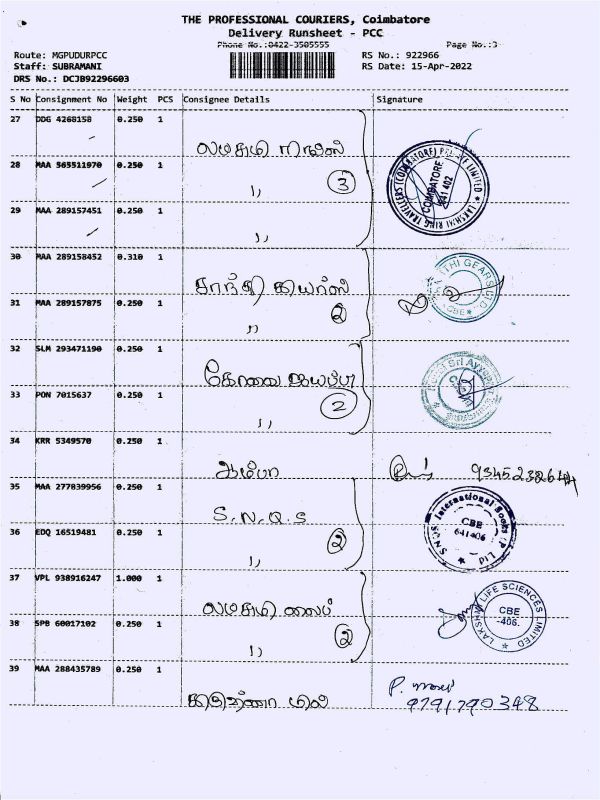 THE PROFESSIONAL COURIERS, Coimbatore
Delivery Runsheet - PCC
Phone No.:0422-3505555
Page No.:3
Route: MGPUDURPCC
RS No.: 922966
Staff: SUBRAMANI
RS Date: 15-Apr-2022
DRS No.: DCJB92296603
S No Consignment No Weight PCS Consignee Details Signature
27 DDG 4268158 0.250 1
லட்சுமி ரிங்ஸ்
28 MAA 565511970 0.250 1
,, 3
29 MAA 289157451 0.250 1
,,
COIMBATORE 641 402
LAKSHMI RING TRAVELLERS (COIMBATORE) PRIVATE LIMITED
30 MAA 289158452 0.310 1
சாந்தி கியர்ஸ்
31 MAA 289157875 0.250 1
,, 2
GEARS LTD. CBE
32 SLM 293471190 0.250 1
கோவை ஐயப்பா
33 PON 7015637 0.250 1
2
,,
Sri Ayyappa
34 KRR 5349570 0.250 1
ஆம்பா
9345232644
35 MAA 277839956 0.250 1
S.N.Q.S
36 EDQ 16519481 0.250 1
,, 2
SNQS International Socks (P) Ltd
CBE 641406
37 VPL 938916247 1.000 1
லட்சுமி லைப்
38 SPB 60017102 0.250 1
,, 2
LAKSHMI LIFE SCIENCES LIMITED
CBE -406.
39 MAA 288435789 0.250 1
கிருஷ்ணா மில்
P.
9791790348